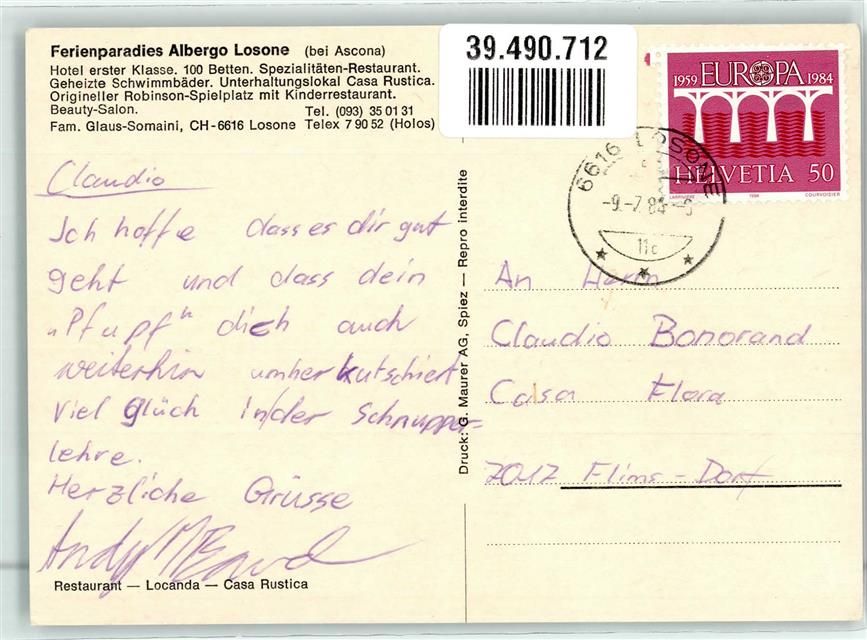 Ferienparadies Albergo Losone (bei Ascona)
Hotel erster Klasse. 100 Betten. Spezialitäten-Restaurant.
Geheizte Schwimmbäder. Unterhaltungslokal Casa Rustica.
Origineller Robinson-Spielplatz mit Kinderrestaurant.
Beauty-Salon. Tel. (093) 35 01 31
Fam. Glaus-Somaini, CH-6616 Losone Telex 7 90 52 (Holos)
39.490.712
1959 EUROPA 1984
HELVETIA 50
1984 COURVOISIER
6616 LOSONE
-9.-7.84-
11c
Claudio
Ich hoffe dass es dir gut
geht und dass dein
"Pfupf" dich auch
weiterhin umherkutschiert
Viel glück in/der Schnupper=
lehre.
Herzliche Grüsse
Andy
Restaurant — Locanda — Casa Rustica
Druck: G. Maurer AG, Spiez — Repro interdite
An Herrn
Claudio Bonorand
Casa Flora
7017 Flims-Dorf